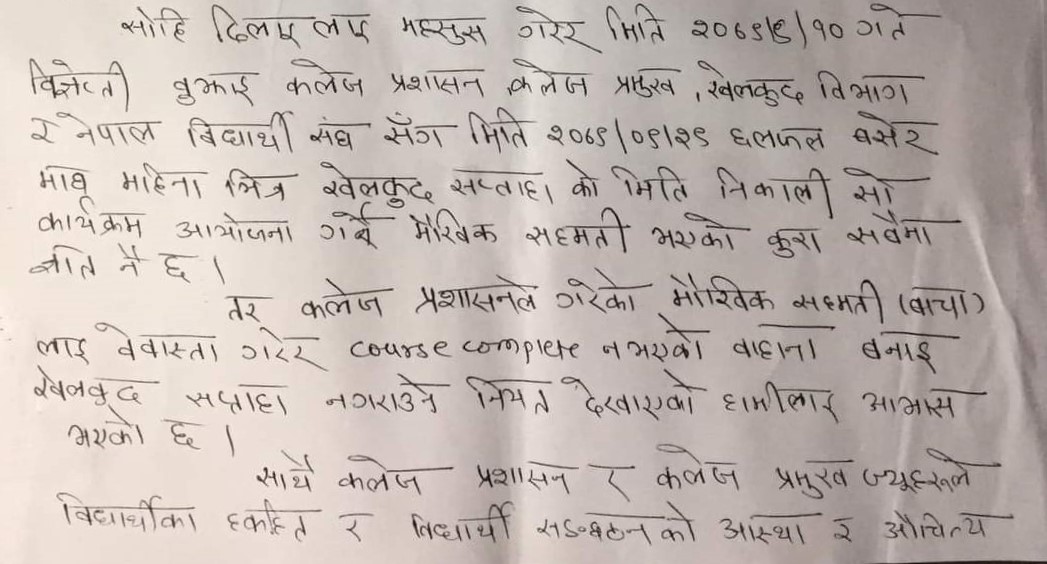 सोहि ढिलाइ लाइ महसुस गरेर मिति २०७९/९/१० गते
विज्ञप्ती बुझाई कलेज प्रशासन, कलेज प्रमुख, खेलकुद विभाग
र नेपाल बिद्यार्थी संघ सँग मिति २०७९/०९/२९ छलफल बसेर
माघ महिना भित्र खेलकुद सप्ताहा को मिति निकाली सो
कार्यक्रम आयोजना गर्ने मौखिक सहमती भएको कुरा सबैमा
ज्ञात नै छ ।
तर कलेज प्रशासनले गरेको मौखिक सहमती (बाचा)
लाइ वेवास्ता गरेर course complete नभएको वाहाना बनाइ
खेलकुद सप्ताहा नगराउने नियत देखाएको हामीलाइ आभास
भएको छ ।
साथै कलेज प्रशासन र कलेज प्रमुख ज्यूहरूले
विद्यार्थीका हकहित र विद्यार्थी सङ्गठन को आस्था र औचित्य